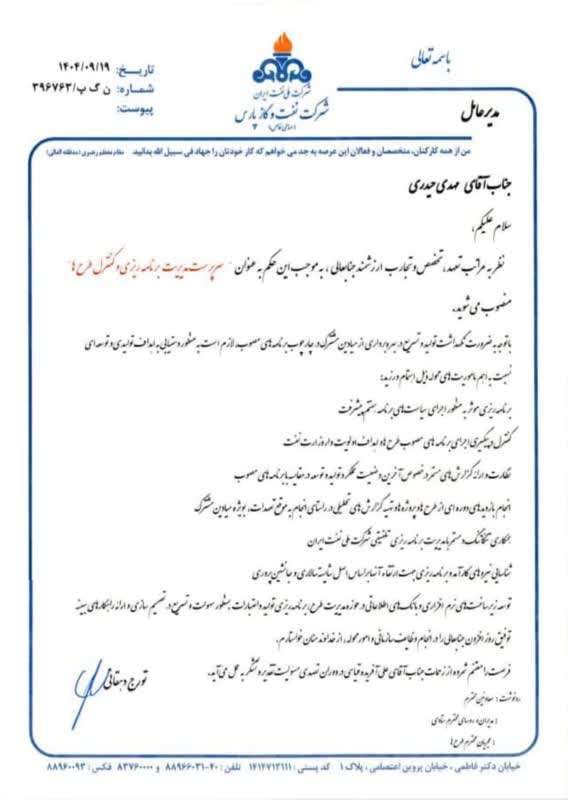 باسمه تعالی
شرکت ملی نفت ایران
شرکت نفت و گاز پارس
(سهامی خاص)
تاریخ: ۱۴۰۴/۰۹/۱۹
شماره: ن گ پ/۳۹۶۷۶۳
پیوست:
مدیرعامل
من از همه کارکنان، متخصصان و فعالان این عرصه به جد می خواهم که کار خودتان را جهاد فی سبیل الله بدانید. مقام معظم رهبری (مدظله العالی)
جناب آقای مهدی حیدری
سلام علیکم،
نظر به مراتب تعهد، تخصص و تجارب ارزشمند جنابعالی، به موجب این حکم به عنوان "سرپرست مدیریت برنامه ریزی و کنترل طرح ها"
منصوب می شوید.
با توجه به ضرورت نگهداشت تولید و تسریع در بهره برداری از میادین مشترک در چارچوب برنامه های مصوب، لازم است به منظور دستیابی به اهداف تولیدی و توسعه ای
نسبت به اهم ماموریت های محوله ذیل اهتمام ورزید:
برنامه ریزی موثر به منظور اجرای سیاست های برنامه هفتم پیشرفت
کنترل و پیگیری اجرای برنامه های مصوب طرح ها و اهداف اولویت دار وزارت نفت
نظارت و ارائه گزارش های مستمر در خصوص آخرین وضعیت عملکرد تولید و توسعه در مقایسه با برنامه های مصوب
انجام بازدیدهای دوره ای از طرح ها و پروژه ها و تهیه گزارش های تحلیلی در راستای انجام به موقع تعهدات، بویژه میادین مشترک
همکاری تنگاتنگ و مستمر با مدیریت برنامه ریزی تلفیقی شرکت ملی نفت ایران
شناسایی نیروهای کارآمد و برنامه ریزی جهت ارتقاء آنها بر اساس اصل شایسته سالاری و جانشین پروری
توسعه زیرساخت های نرم افزاری و بانک های اطلاعاتی در حوزه مدیریت طرح، برنامه ریزی تولید و اعتبارات بمنظور سهولت و تسریع در تصمیم سازی و ارائه راهکارهای بهینه
توفیق روز افزون جنابعالی را در انجام وظایف سازمانی و امور محوله، از خداوند منان خواستارم.
فرصت را مغتنم شمرده و از زحمات جناب آقای علی آفریده قیاسی در دوران تصدی مسئولیت تقدیر و تشکر به عمل می آید.
تورج دهقانی
رونوشت: معاونین محترم
: مدیران و روسای محترم ستادی
: مجریان محترم طرح ها
خیابان دکتر فاطمی، خیابان پروین اعتصامی، پلاک ۱ کد پستی: ۱۴۱۴۷۱۳۱۱۱ تلفن: ۴۰-۸۸۹۶۶۰۳۱ و ۸۳۷۶۰۰۰۰ فکس: ۸۸۹۶۰۰۹۳